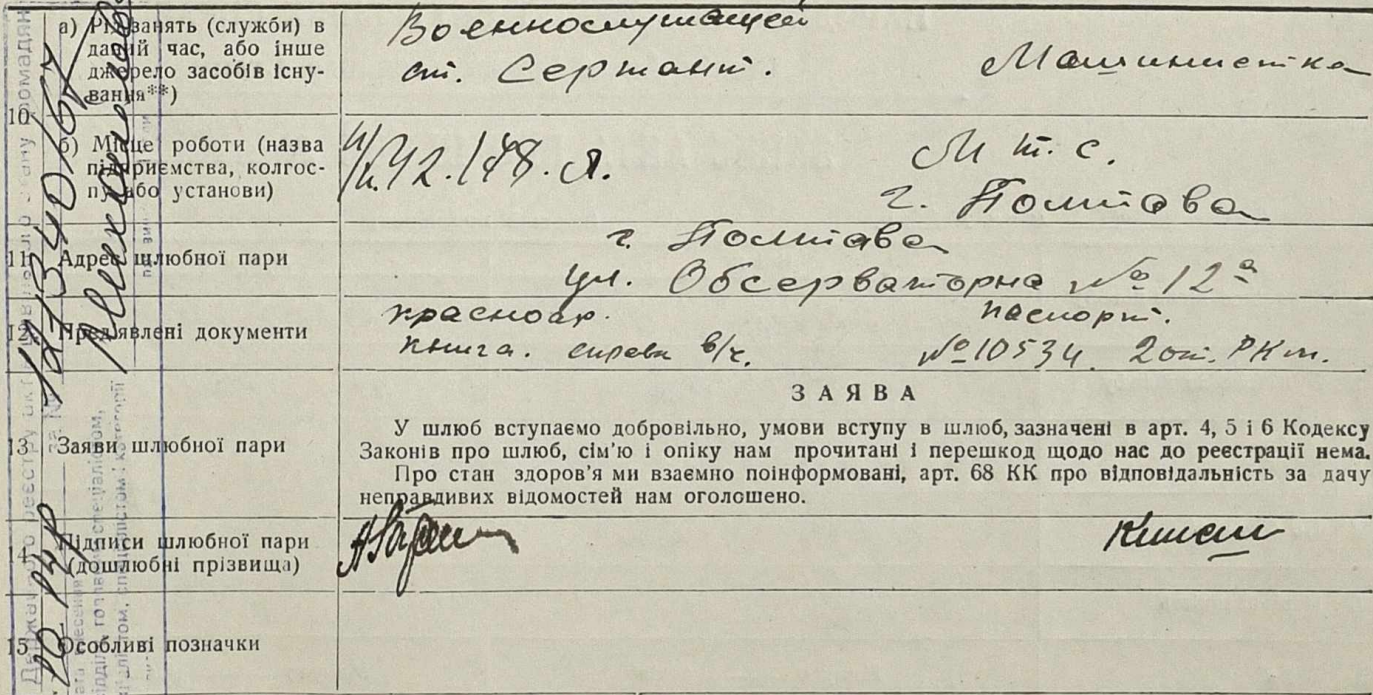 10
а) Рід занять (служби) в
даний час, або інше
джерело засобів існу-
вання**)
Военнослужащей
ст. Сержант.
Машинистка
б) Місце роботи (назва
підприємства, колгос-
пу, або установи)
М т. с.
г. Полтава
11 Адрес шлюбної пари
г. Полтава
ул. Обсерваторна № 12 а
12 Пред'явлені документи
красноар.
книга. справк в/ч.
паспорт.
№ 10534. 2 от. РКм.
ЗАЯВА
13 Заяви шлюбної пари
У шлюб вступаємо добровільно, умови вступу в шлюб, зазначені в арт. 4, 5 і 6 Кодексу
Законів про шлюб, сім'ю і опіку нам прочитані і перешкод щодо нас до реєстрації нема.
Про стан здоров'я ми взаємно поінформовані, арт. 68 КК про відповідальність за дачу
неправдивих відомостей нам оголошено.
14 Підписи шлюбної пари
(дошлюбні прізвища)
15 Особливі позначки